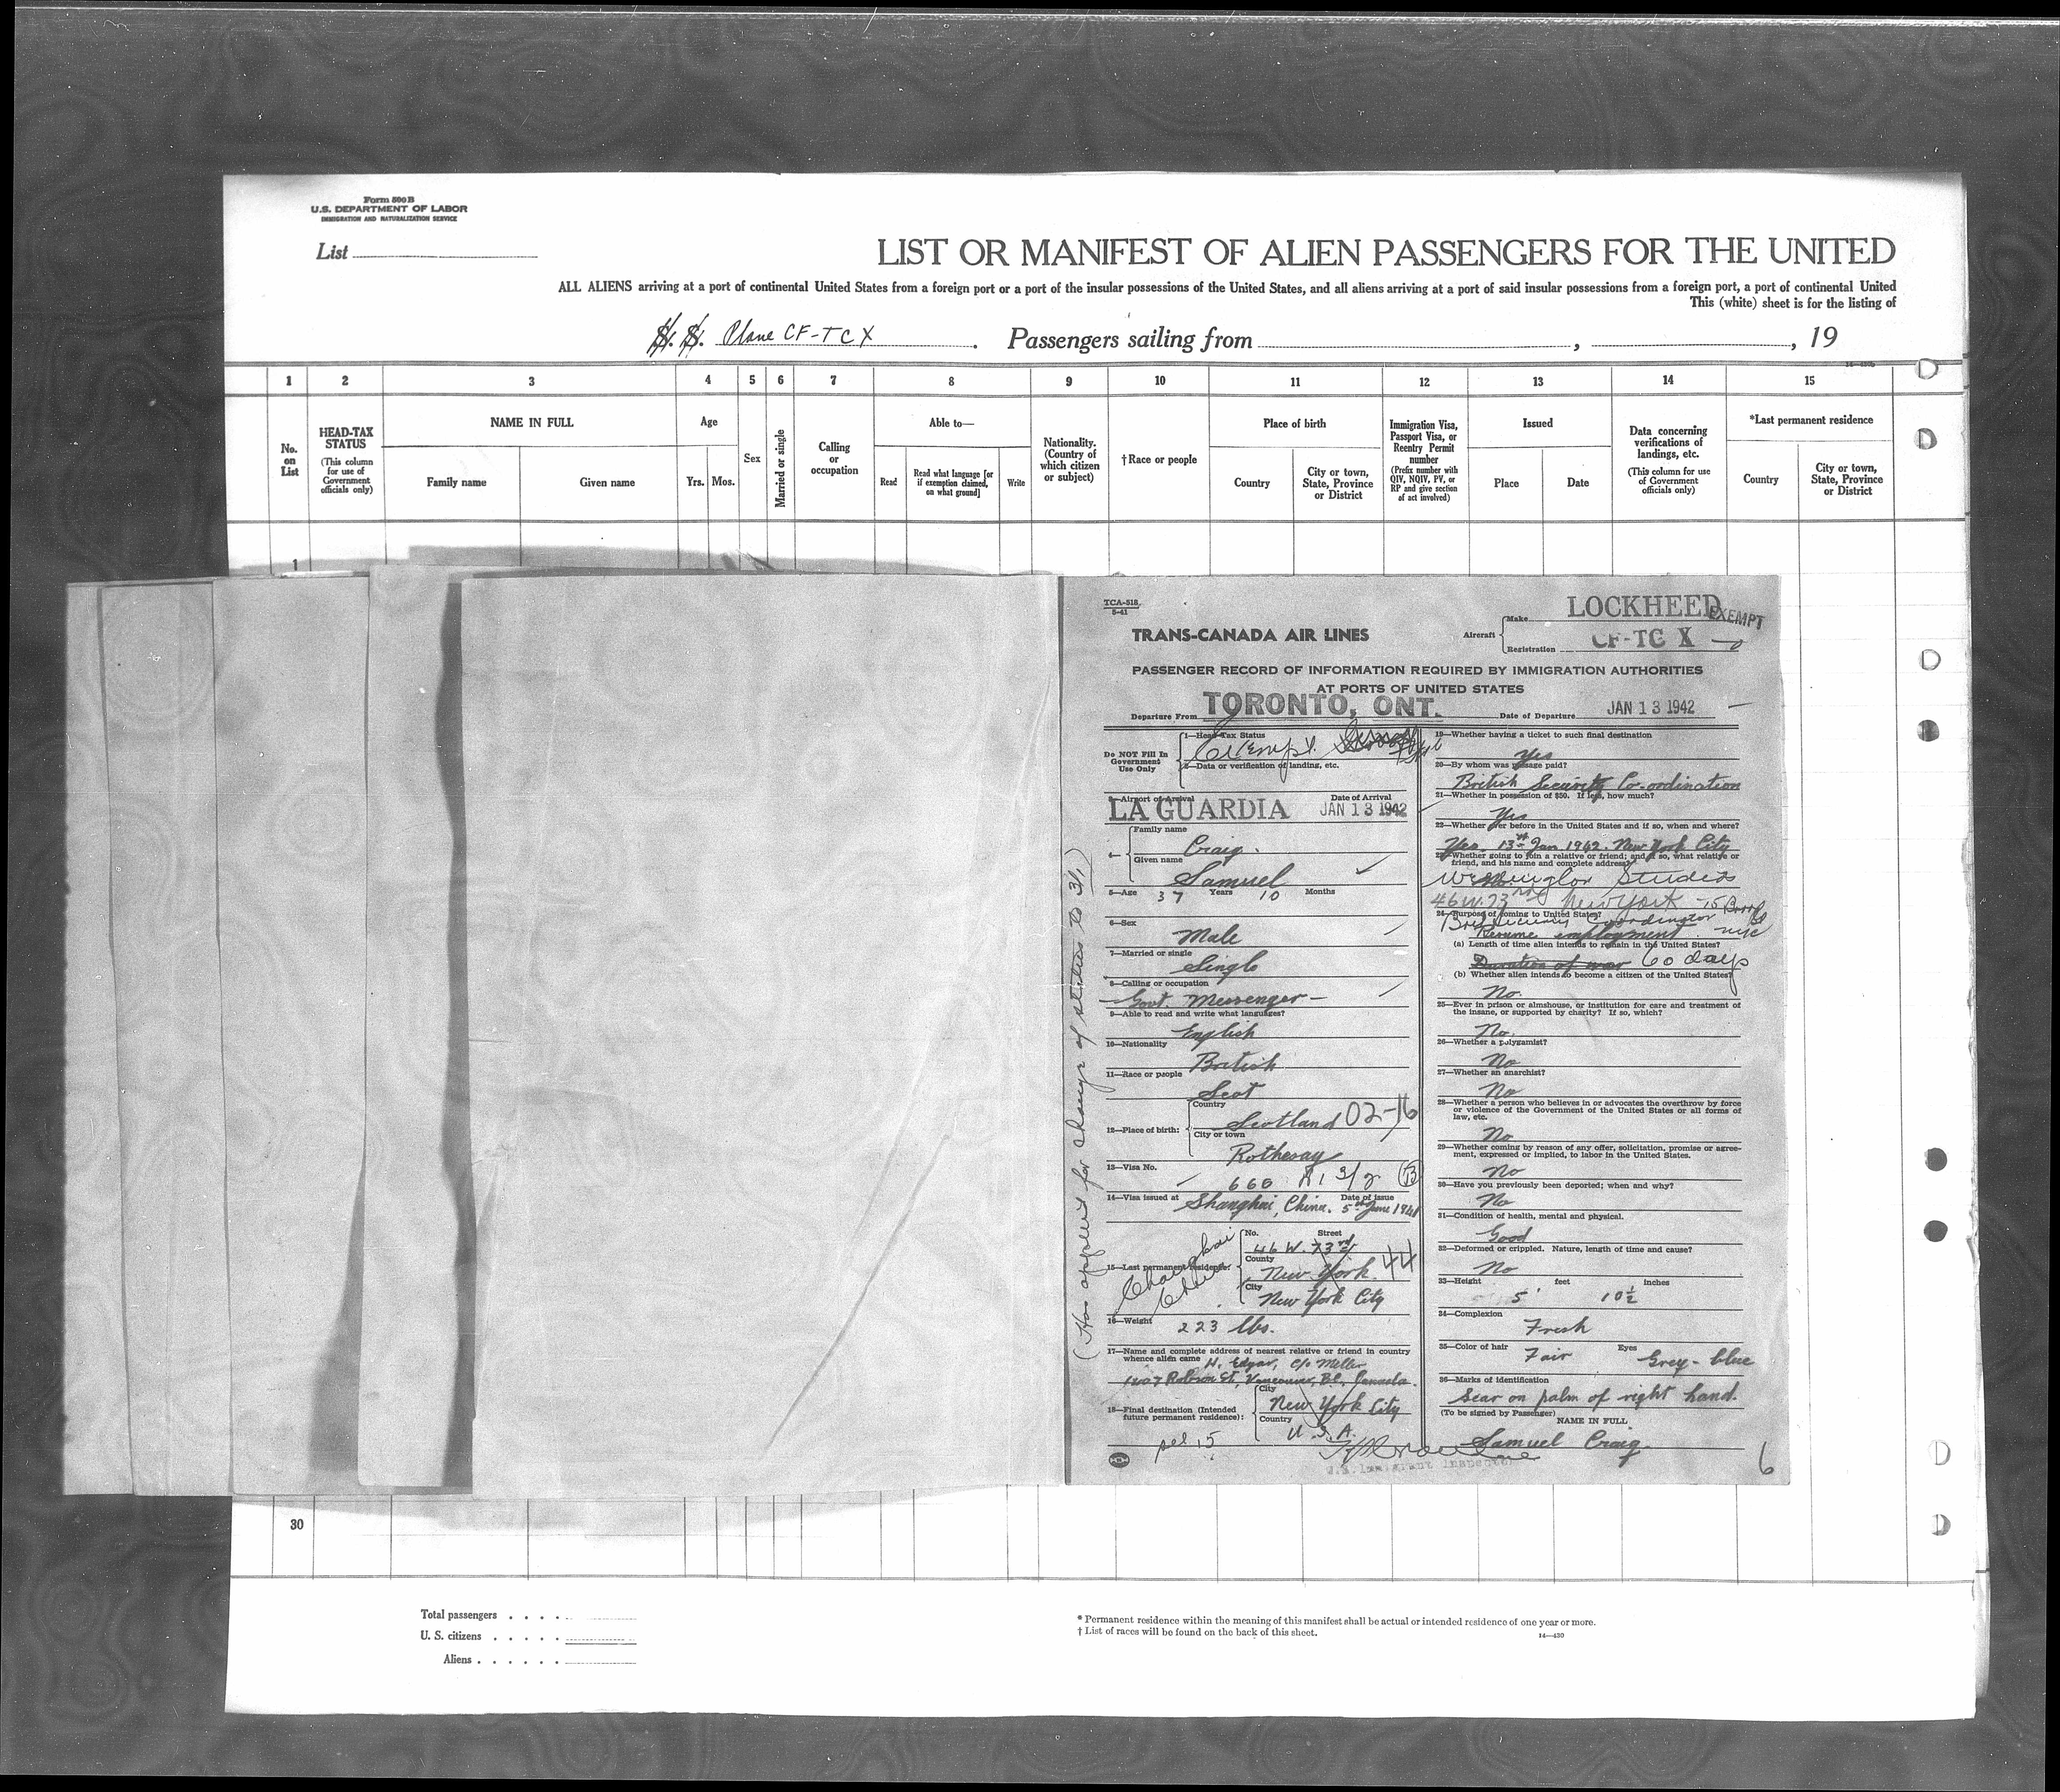 Form 500 B
U.S. DEPARTMENT OF LABOR
IMMIGRATION AND NATURALIZATION SERVICE
List
LIST OR MANIFEST OF ALIEN PASSENGERS FOR THE UNITED
ALL ALIENS arriving at a port of continental United States from a foreign port or a port of the insular possessions of the United States, and all aliens arriving at a port of said insular possessions from a foreign port, a port of continental United
This (white) sheet is for the listing of
S. S. Plane CF-TCX. Passengers sailing from , , 19
1 2 3 4 5 6 7 8 9 10 11 12 13 14 15
No. on List
HEAD-TAX STATUS
(This column for use of Government officials only)
NAME IN FULL
Family name Given name
Age
Yrs. Mos.
Sex
Married or single
Calling or occupation
Able to—
Read
Read what language [or if exemption claimed, on what ground]
Write
Nationality. (Country of which citizen or subject)
†Race or people
Place of birth
Country
City or town, State, Province or District
Immigration Visa, Passport Visa, or Reentry Permit number
(Prefix number with QIV, NQIV, PV, or RP and give section of act involved)
Issued
Place Date
Data concerning verifications of landings, etc.
(This column for use of Government officials only)
*Last permanent residence
Country
City or town, State, Province or District
1
TCA-518
5-41
TRANS-CANADA AIR LINES
Aircraft
Make LOCKHEED
EXEMPT
Registration CF-TC X
PASSENGER RECORD OF INFORMATION REQUIRED BY IMMIGRATION AUTHORITIES
AT PORTS OF UNITED STATES
Departure From TORONTO, ONT.
Date of Departure JAN 13 1942
Do NOT Fill In
Government
Use Only
1—Head Tax Status
Exempt
2—Data or verification of landing, etc.
3—Airport of Arrival Date of Arrival
LA GUARDIA JAN 13 1942
4—
Family name
Craig.
Given name
Samuel
5—Age 37 Years 10 Months
6—Sex
Male
7—Married or single
Single
8—Calling or occupation
Govt. Messenger
9—Able to read and write what languages?
English
10—Nationality
British
11—Race or people
Scot
12—Place of birth:
Country
Scotland 02-16
City or town
Rothesay
13—Visa No.
660 3/2
14—Visa issued at Date of issue
Shanghai, China. 5th June 1941
15—Last permanent residence
Shanghai
China
No. Street
46 W. 73rd
County
New York. 44
City
New York City
16—Weight
223 lbs.
17—Name and complete address of nearest relative or friend in country
whence alien came H. Edgar, c/o Miller
1207 Robson St, Vancouver, BC, Canada.
18—Final destination (Intended
future permanent residence):
City
New York City
Country
U.S.A.
(Has applied for change of status to 3(1))
19—Whether having a ticket to such final destination
Yes
20—By whom was passage paid?
British Security Co-ordination
21—Whether in possession of $50. If less, how much?
Yes
22—Whether ever before in the United States and if so, when and where?
Yes. 13th Jan 1942. New York City
23—Whether going to join a relative or friend; and if so, what relative or
friend, and his name and complete address?
Studios
46 W. 73rd New York
24—Purpose of coming to United States?
Resume employment. NYC
(a) Length of time alien intends to remain in the United States?
Duration of war 60 days
(b) Whether alien intends to become a citizen of the United States?
No.
25—Ever in prison or almshouse, or institution for care and treatment of
the insane, or supported by charity? If so, which?
No.
26—Whether a polygamist?
No
27—Whether an anarchist?
No
28—Whether a person who believes in or advocates the overthrow by force
or violence of the Government of the United States or all forms of
law, etc.
No
29—Whether coming by reason of any offer, solicitation, promise or agree-
ment, expressed or implied, to labor in the United States.
No
30—Have you previously been deported; when and why?
No
31—Condition of health, mental and physical.
Good
32—Deformed or crippled. Nature, length of time and cause?
No
33—Height feet inches
5' 10½
34—Complexion
Fresh
35—Color of hair Eyes
Fair Grey-blue
36—Marks of identification
Scar on palm of right hand.
(To be signed by Passenger)
NAME IN FULL
Samuel Craig.
U.S. Immigrant Inspector
6
30
Total passengers
U. S. citizens
Aliens
* Permanent residence within the meaning of this manifest shall be actual or intended residence of one year or more.
† List of races will be found on the back of this sheet.
14—430